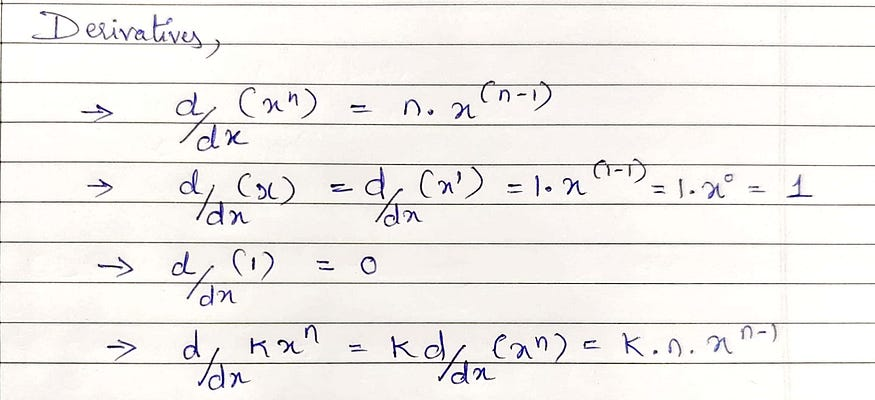 Derivatives,
→ d/dx (xⁿ) = n. x⁽ⁿ⁻¹⁾
→ d/dx (x) = d/dx (x¹) = 1. x⁽¹⁻¹⁾ = 1. x⁰ = 1
→ d/dx (1) = 0
→ d/dx Kxⁿ = K d/dx (xⁿ) = K. n. xⁿ⁻¹